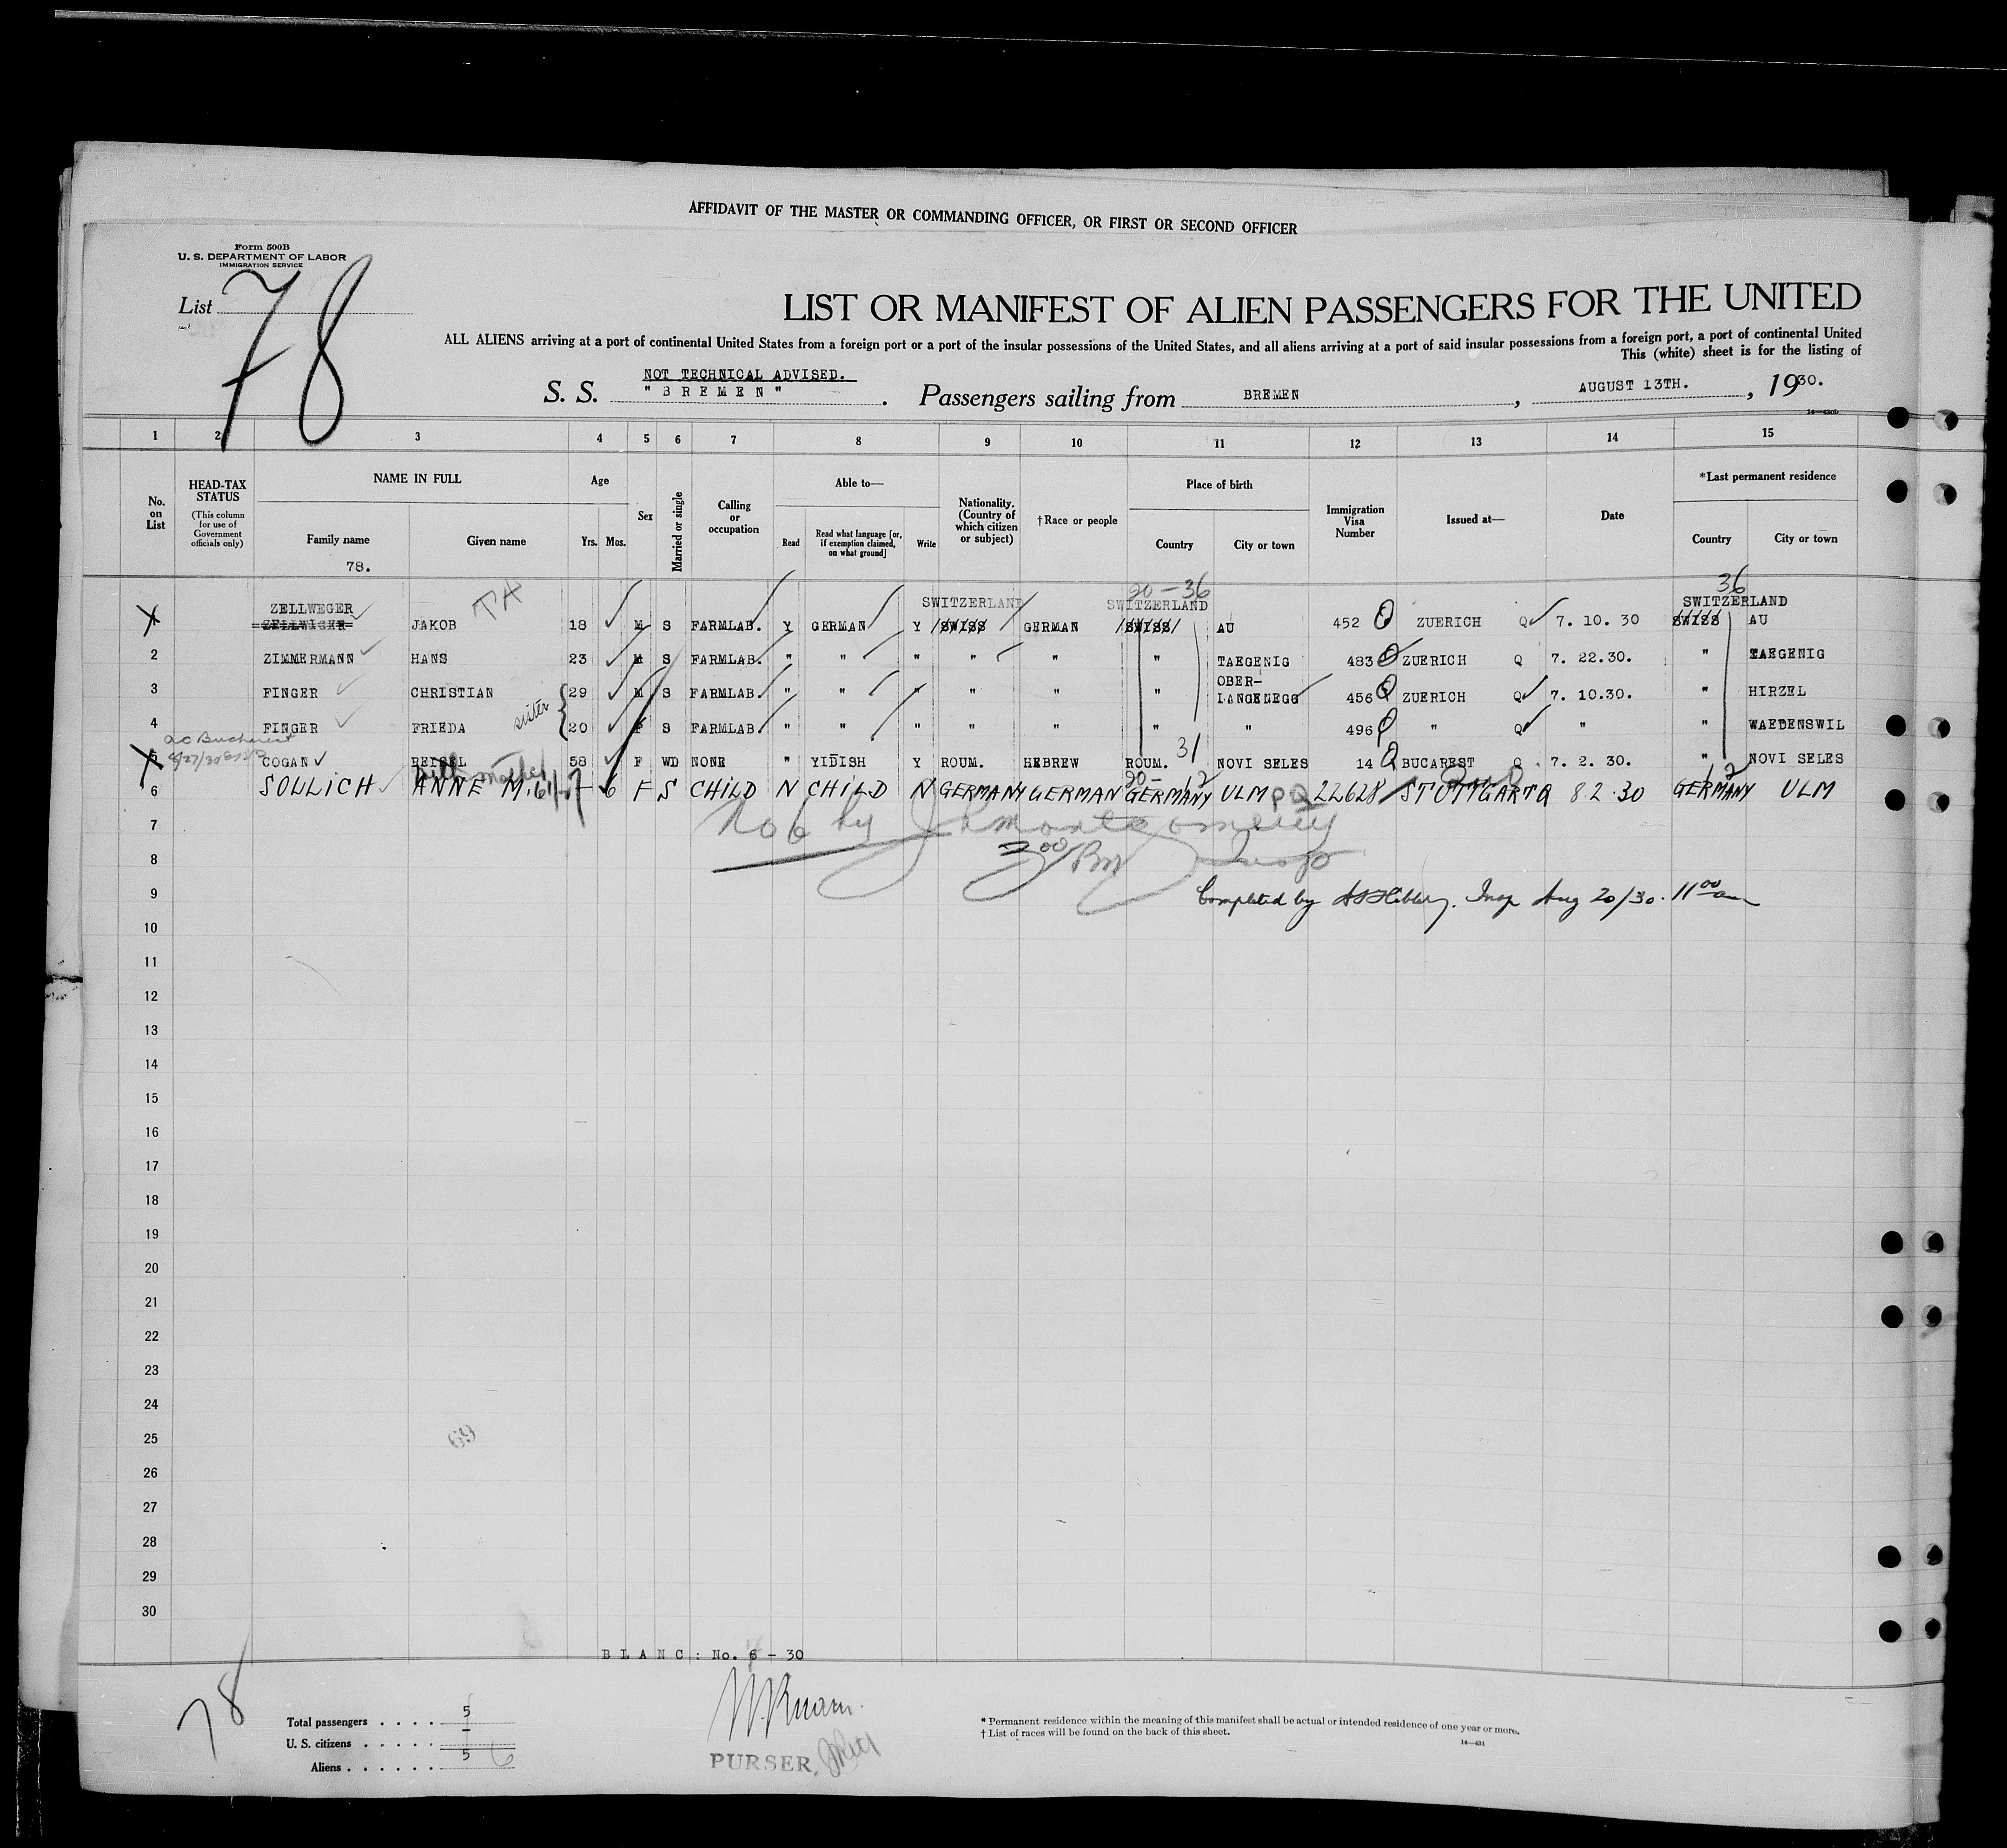 AFFIDAVIT OF THE MASTER OR COMMANDING OFFICER, OR FIRST OR SECOND OFFICER
Form 500B
U. S. DEPARTMENT OF LABOR
IMMIGRATION SERVICE
List 78
LIST OR MANIFEST OF ALIEN PASSENGERS FOR THE UNITED
ALL ALIENS arriving at a port of continental United States from a foreign port or a port of the insular possessions of the United States, and all aliens arriving at a port of said insular possessions from a foreign port, a port of continental United
This (white) sheet is for the listing of
NOT TECHNICAL ADVISED.
S. S. "BREMEN". Passengers sailing from BREMEN, AUGUST 13TH., 1930.
1 2 3 4 5 6 7 8 9 10 11 12 13 14 15
No. on List
HEAD-TAX STATUS (This column for use of Government officials only)
NAME IN FULL
Family name
Given name
78.
Age
Yrs. Mos.
Sex
Married or single
Calling or occupation
Able to—
Read
Read what language [or, if exemption claimed, on what ground]
Write
Nationality. (Country of which citizen or subject)
†Race or people
Place of birth
Country
City or town
Immigration Visa Number
Issued at—
Date
*Last permanent residence
Country
City or town
20-36 36
ZELLWEGER SWITZERLAND SWITZERLAND SWITZERLAND
1 ZELLWIGER JAKOB 18 M S FARMLAB. Y GERMAN Y SWISS GERMAN SWISS AU 452 ZUERICH Q 7. 10. 30 SWISS AU
2 ZIMMERMANN HANS 23 M S FARMLAB. " " " " " " TAEGENIG 483 ZUERICH Q 7. 22.30. " TAEGENIG
OBER-
3 FINGER CHRISTIAN 29 M S FARMLAB. " " " " " " LANGENEGG 456 ZUERICH Q 7. 10.30. " HIRZEL
sister
4 FINGER FRIEDA 20 F S FARMLAB. " " " " " " " 496 " Q " " WAEDENSWIL
31
5 COGAN REISEL 58 F WD NONE " YIDISH Y ROUM. HEBREW ROUM. NOVI SELES 14 BUCAREST Q 7. 2. 30. " NOVI SELES
with mother
6 SOLLICH ANNE M. 6 F S CHILD N CHILD N GERMANY GERMAN GERMANY ULM 22628 STUTTGART Q 8.2.30 GERMANY ULM
7
No 6 by Montgomery
8
3 00 PM
9
Completed by Insp Aug 20/30. 11 00 am
10
11
12
13
14
15
16
17
18
19
20
21
22
23
24
25
69
26
27
28
29
30
BLANC: No. 6 - 30
78
Total passengers . . . . 5
U. S. citizens . . . . . –
Aliens . . . . . . 5 6
PURSER.
* Permanent residence within the meaning of this manifest shall be actual or intended residence of one year or more.
† List of races will be found on the back of this sheet.
14—431